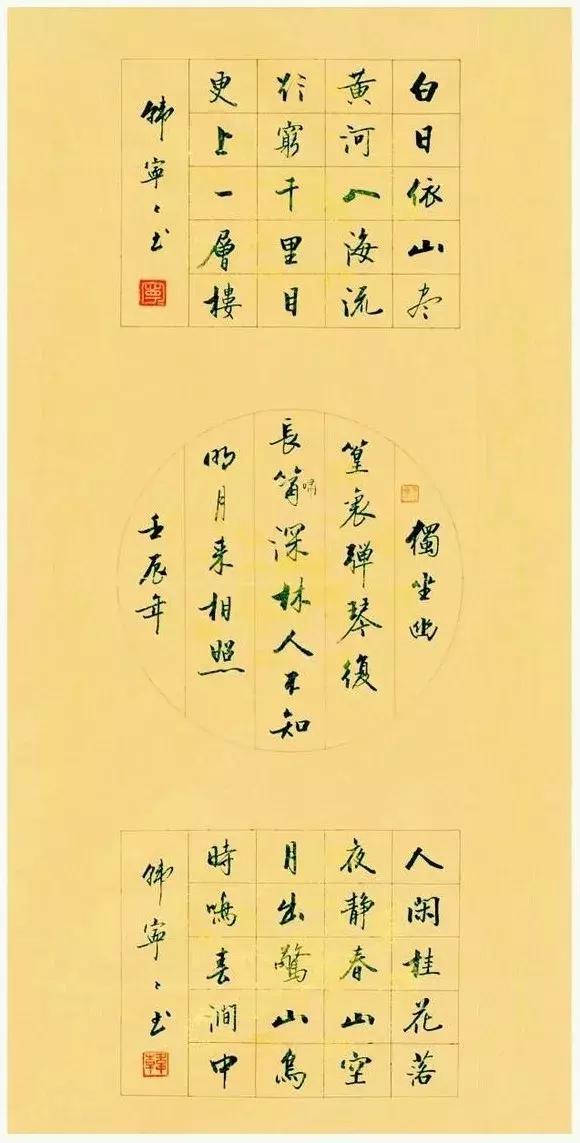 白日依山尽
黃河入海流
欲窮千里目
更上一層樓
韩寧々书
獨坐幽
篁裏彈琴復
長箫嘯深林人不知
明月来相照
壬辰年
人闲桂花落
夜静春山空
月出驚山鳥
時鳴春澗中
韩寧々书